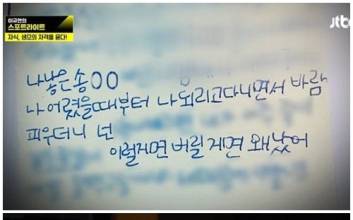 이규연의
스포트라이트
자식, 생모의 자격을 묻다!
jtbc
나낳은 송OO
나 어렸을때부터 나 되리고다니면서 바람
피우더니 넌
이럴게면 버릴 게면 왜낳았어